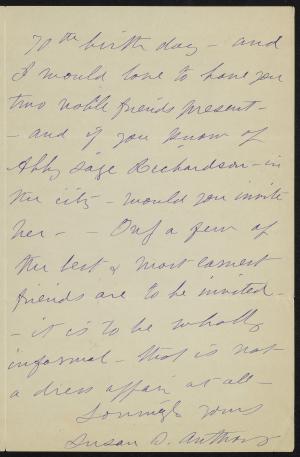 70th birth day - and
I would love to have you
two noble friends present -
- and if you know of
Abby Sage Richardson - in
the city - would you invite
her - - Only a few of
the best & most earnest
friends are to be invited -
- it is to be wholly
informal - that is not
a dress affair at all -
Lovingly yours
Susan B. Anthony